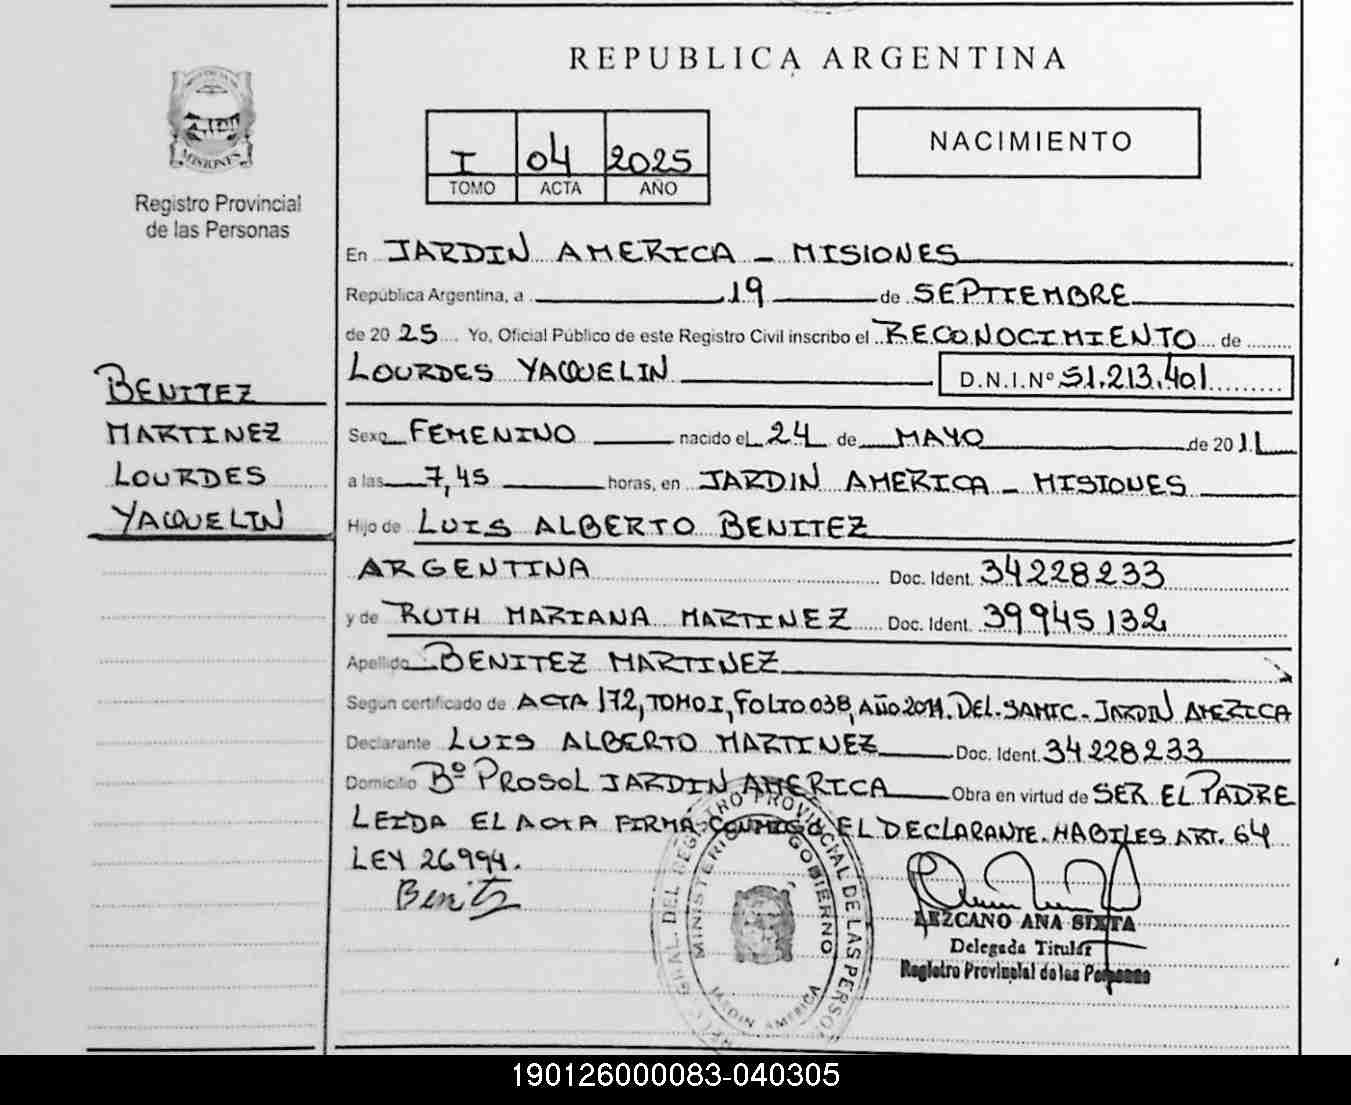 REPUBLICA ARGENTINA
MISIONES
Registro Provincial
de las Personas
I 04 2025
TOMO ACTA AÑO
NACIMIENTO
BENITEZ
MARTINEZ
LOURDES
YAQUELIN
En JARDIN AMERICA - MISIONES
República Argentina, a 19 de SEPTIEMBRE
de 20 25 Yo, Oficial Público de este Registro Civil inscribo el RECONOCIMIENTO de
LOURDES YAQUELIN D.N.I.Nº 51.213.401
Sexo FEMENINO nacido el 24 de MAYO de 2011
a las 7,45 horas, en JARDIN AMERICA - MISIONES
Hijo de LUIS ALBERTO BENITEZ
ARGENTINA Doc. Ident. 34228233
y de RUTH MARIANA MARTINEZ Doc. Ident. 39945132
Apellido BENITEZ MARTINEZ
Según certificado de ACTA 172, TOMO I, FOLIO 038, AÑO 2011. DEL. SAMIC. JARDIN AMERICA
Declarante LUIS ALBERTO MARTINEZ Doc. Ident. 34228233
Domicilio Bº PROSOL JARDIN AMERICA Obra en virtud de SER EL PADRE
LEIDA EL ACTA FIRMA CONMIGO EL DECLARANTE. HABILES ART. 64
LEY 26994.
Benitz
GRAL. DEL REGISTRO PROVINCIAL DE LAS PERSO
MINISTERIO GOBIERNO
JARDIN AMERICA
LEZCANO ANA SIXTA
Delegada Titular
Registro Provincial de las Personas
190126000083-040305